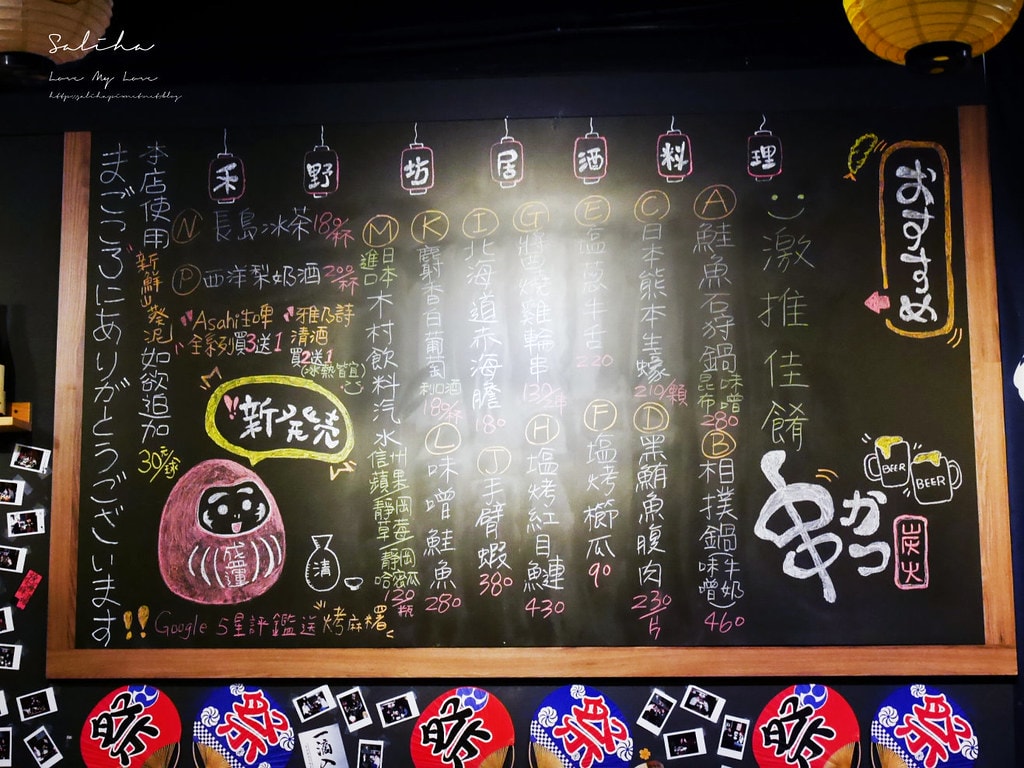 Saliha
Love My Love
http://saliha.pixnet.net/blog
禾野坊居酒料理
おすすめ
激推佳餚
串かつ
炭火
BEER
BEER
A 鮭魚石狩鍋 味噌 昆布 280
B 相撲鍋(牛奶 味噌) 460
C 日本熊本生蠔 219/顆
D 黑鮪魚腹肉 230/片
E 塩蔥牛舌 220
F 塩烤櫛瓜 90
G 醬燒雞輪串
H 塩烤紅目鰱 430
I 北海道赤海膽 180
J 手臂蝦 380
K 麝香白葡萄利口酒 180/杯
L 味噌鮭魚 280
M 日本進口木村飲料汽水
信州蘋果 靜岡草莓 靜岡哈密瓜 120/瓶
N 長島冰茶 180/杯
P 西洋梨奶酒 200/杯
Asahi生啤 全系列買3送1
雅乃詩清酒 買2送1
(冰熱皆宜)
!!新発売
盛運
清
本店使用新鮮山葵泥如欲追加
30元/球
まごころにありがとうございます!!
Google 5星評鑑送烤麻糬
祭
祭
祭
祭
祭
祭